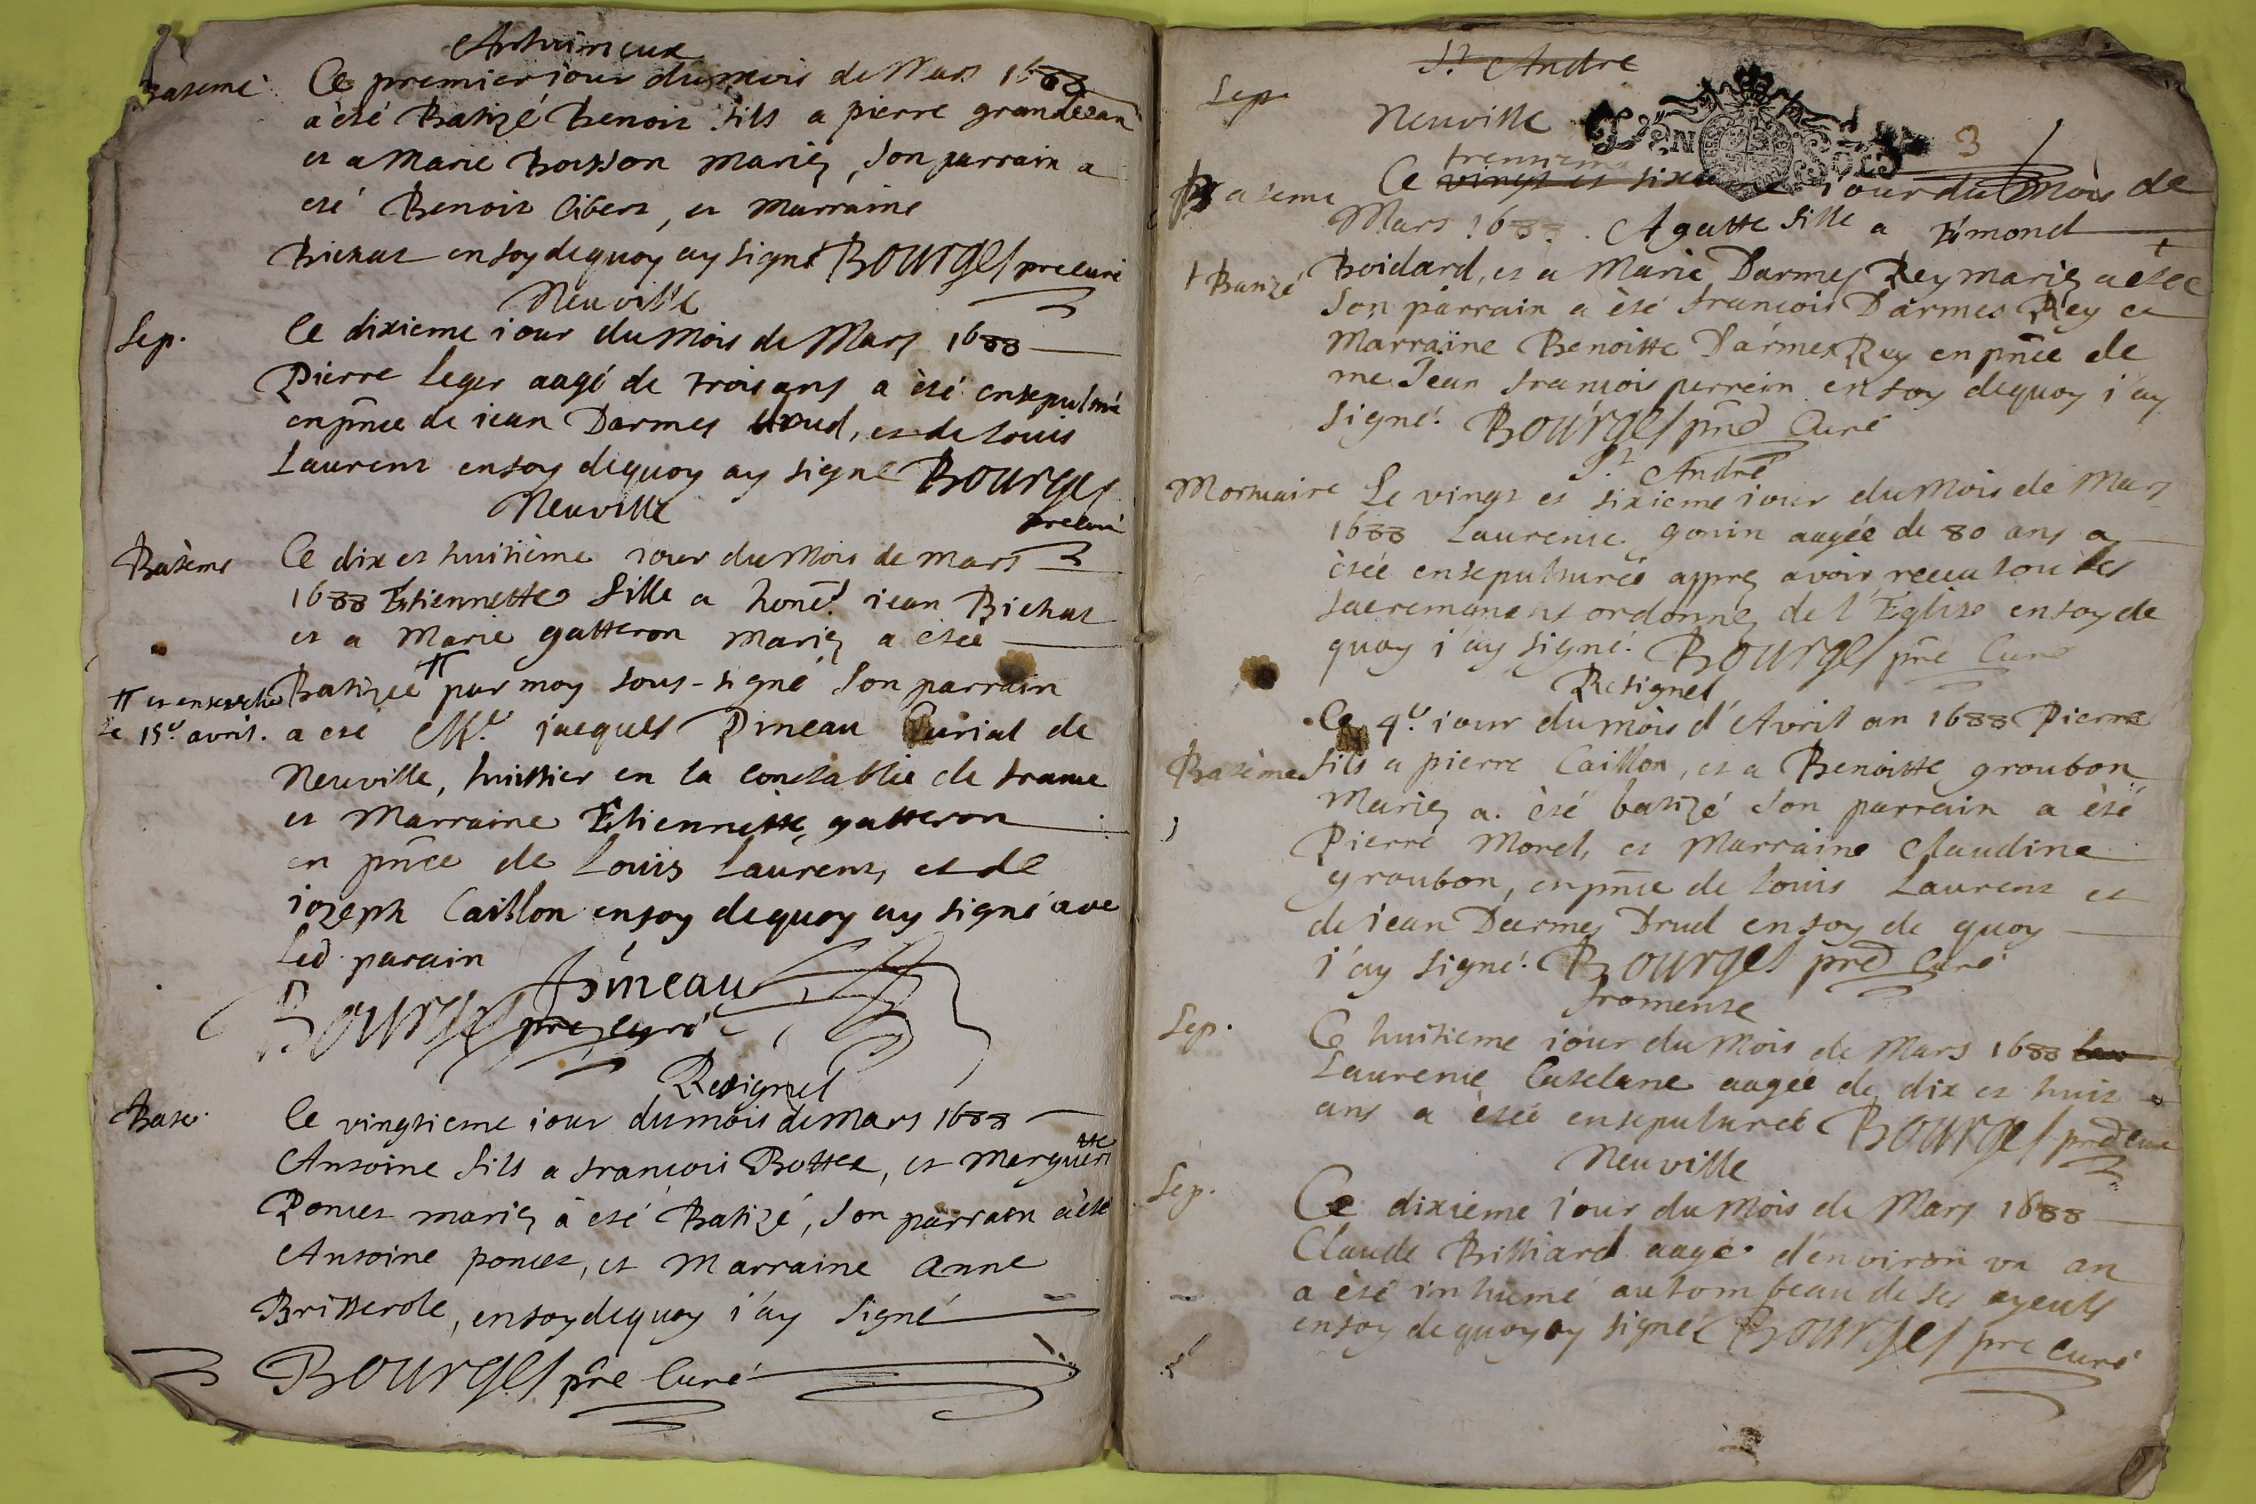 Anthuineux
Bateme
Ce premier iour du mois de Mars 1688
a été Batizé Benoit fils a pierre grandiean
et a Marie Boisson mariez, son parrain a
eté Benoit libert, et Marraine
Bichat en foy de quoy ay signé Bourges pre curé
Neuville
Sep.
Ce dixieme iour du Mois de Mars 1688
Pierre leger aagé de trois ans a èté ensepulturé
en pñce de iean Darmes drud, et de louis
Laurent en foy de quoy ay signé Bourges
pre curé
Neuville
Batême
Ce dix et huitième iour du Mois de mars
1688 Etiennette fille a honè. iean Bichat
et a Marie gatteron mariez a etée
Batizée π par moy sous-signé son parrain
π et enseveli
le 15e avril.
a eté Me. jacques Pineau Curial de
Neuville, huissier en la conetablie de france
et Marraine Etiennette gatteron
en pñce de Louis Laurent, et de
iozeph Caillon en foy de quoy ay signé ave
led parain
Pineau
Bourges pre curé
Resignel
Bate.
Ce vingtieme iour du mois de mars 1688
Antoine fils a francois Bottex, et Marguéri
tte
Poncet mariez à eté Batizé, son parrain a èté
Antoine poncet, et Marraine Anne
Brisserole, en foy de quoy i'ay signé
Bourges pre Curé
St Andre
Sep.
Neuville
3
trentieme
Bateme
Ce vingt et sixieme iour du Mois de
Mars 1688. Agatte fille a Emond
+ Batizé
Boidard, et a Marie Darmes Rey mariez a etée +
son parrain a èté francois Darmes Rey et
Marraine Benoitte Darmes Rey en pñce de
me. Jean francois perrein en foy de quoy i'ay
signé. Bourges pré Curé
St André
Mortuaire
Le vingt et sixieme iour du Mois de Mars
1688 Laurence gonin aagée de 80 ans a
ètée ensepulturée apprez avoir receu tous les
sacremanents ordonnez de l'Eglise en foy de
quoy i'ay signé. Bourges pre Curé
Resignel
Ce 4e. iour du mois d'Avril an 1688 Pierre
Batême
fils a pierre Caillon, et a Benoitte groubon
mariez a. èté batizé son parrain a èté
Pierre Morel, et Marraine Claudine
groubon, en pñce de Louis Laurent et
de iean Darmes Drud en foy de quoy
i'ay signé. Bourges pre Curé
fromente
Sep.
Ce huitieme iour du Mois de Mars 1688 lau
Laurence Catelane aagée de dix et huit
ans a ètée ensepulturée Bourges pre Curé
Neuville
Sep.
Ce dixieme iour du Mois de Mars 1688
Claude Brilliard aagé d'environ un an
a èté inhumé au tombeau de ses ayeuls
en foy de quoy ay signé Bourges pre curé